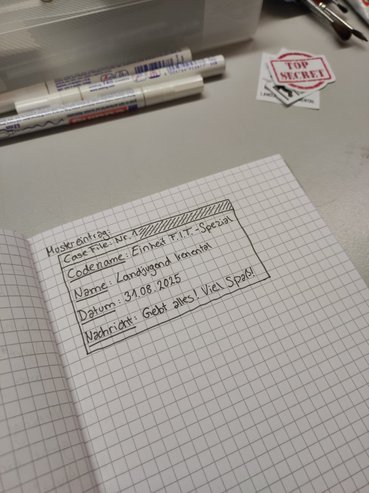 TOP
SECRET
Mustereintrag:
Case File: Nr. 1
Codename: Einheit F.I.T.-Spezial
Name: Landjugend Irenental
Datum: 31.08.2025
Nachricht: Gebt alles! Viel Spaß!